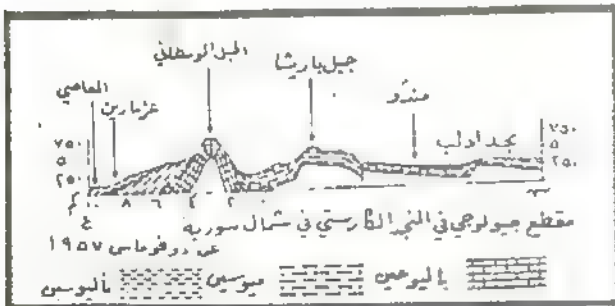 الجبل الوسطاني
جبل باريشا
العاصي
عزمارين
مندو
نجد ادلب
٧٥٠
٥
٢٥٠
٧٥٠
٥
٢٥٠
٨ ٦ ٤ ٢
غ
مقطع جيولوجي في النجد الكارستي في شمال سورية
عن دوفوماس ١٩٥٧
باليوجين
ميوسين
باليوسين